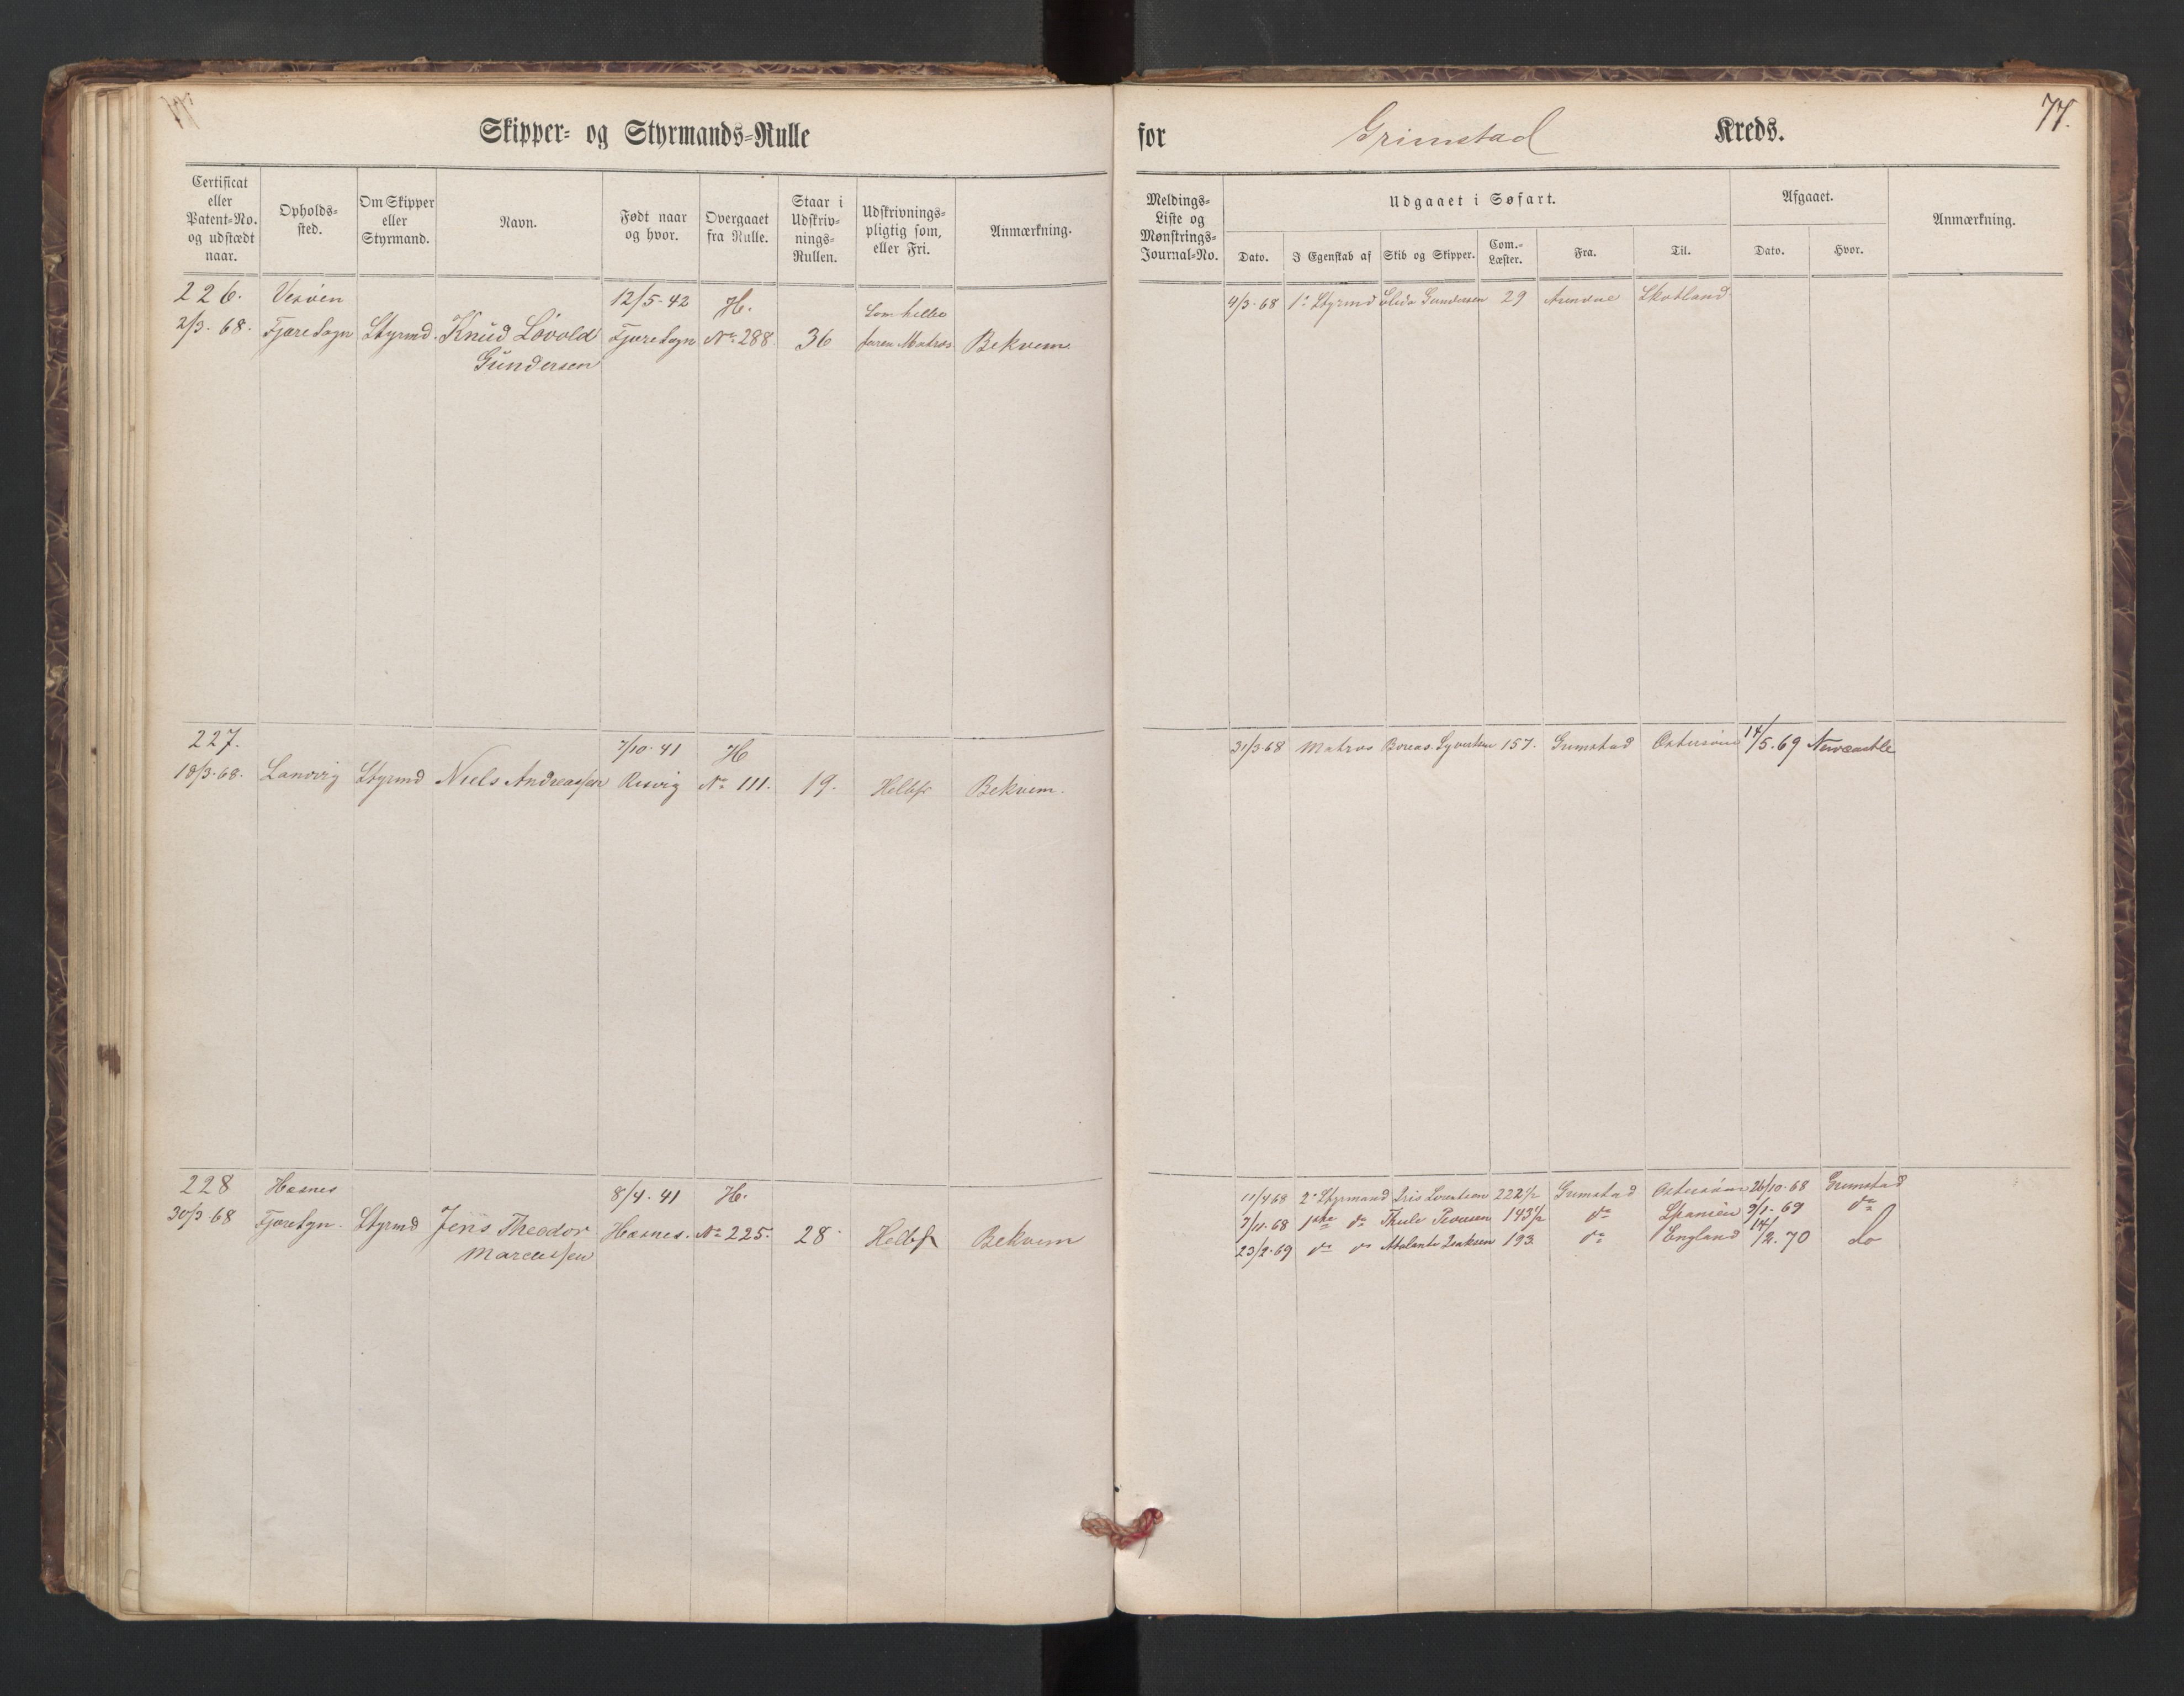 77.
Skipper- og Styrmands-Rulle for Grimstad Kreds.
Certificat eller Patent-No. og udstædt naar.
Opholds-sted.
Om Skipper eller Styrmand.
Navn.
Født naar og hvor.
Overgaaet fra Rulle.
Staar i Udskriv-nings-Rullen.
Udskrivnings-pligtig som, eller Fri.
Anmærkning.
Meldings-Liste og Mønstrings-Journal-No.
Udgaaet i Søfart.
Dato. I Egenskab af Skib og Skipper. Com.-Læster. Fra. Til.
Afgaaet.
Dato. Hvor.
Anmærkning.
226. Vesöen 12/5-42 H. Som helbe
2/3-68. Fjære Sogn Styrmd. Knud Lövold Fjære Sogn No 288. 36 faren Matros Bekvem
Gundersen
4/3-68 1e Styrmd Gundersen 29 Arendal Skotland
227. 7/10-41 H
18/3-68. Landvig Styrmd Niels Andreassen No 111. 19. Helbf Bekvem.
31/3-68 Matros Boreas. Syvertsen 157. Grimstad Östersöen 14/5-69 Newcastle
228 Hasnes 8/4-41 H.
30/3-68 Fjære Sgn. Styrmd Jens Theodor Hasnes. No 225. 28. Helbf Bekvem
Marcussen
11/4 68 2e Styrmand Iris Lorentsen 222 1/2 Grimstad Östersöen 26/10-68 Grimstad
7/11-68 1ste do Thule 143 1/2 do Spanien 9/1-69 do
23/2-69 do do Atalanta Isaksen 193. do England 14/2-70 do